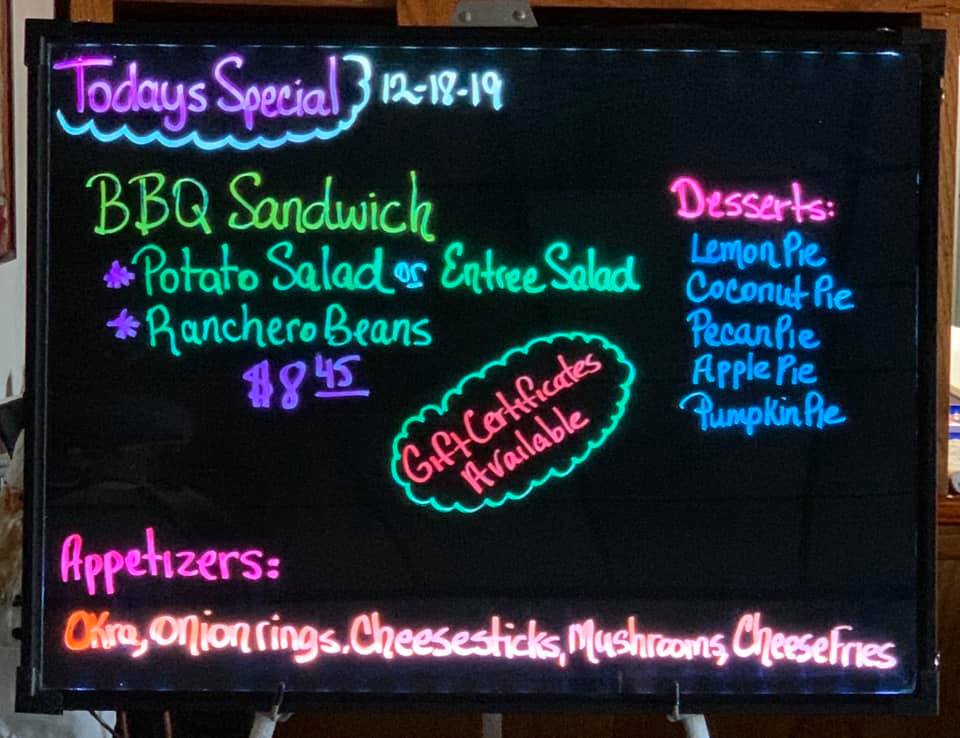 Todays Special 12-18-19
BBQ Sandwich
* Potato Salad or Entree Salad
* Ranchero Beans
$8 45
Gift Certificates
Available
Desserts:
Lemon Pie
Coconut Pie
Pecan Pie
Apple Pie
Pumpkin Pie
Appetizers:
Okra, Onion rings. Cheesesticks, Mushrooms, Cheese Fries